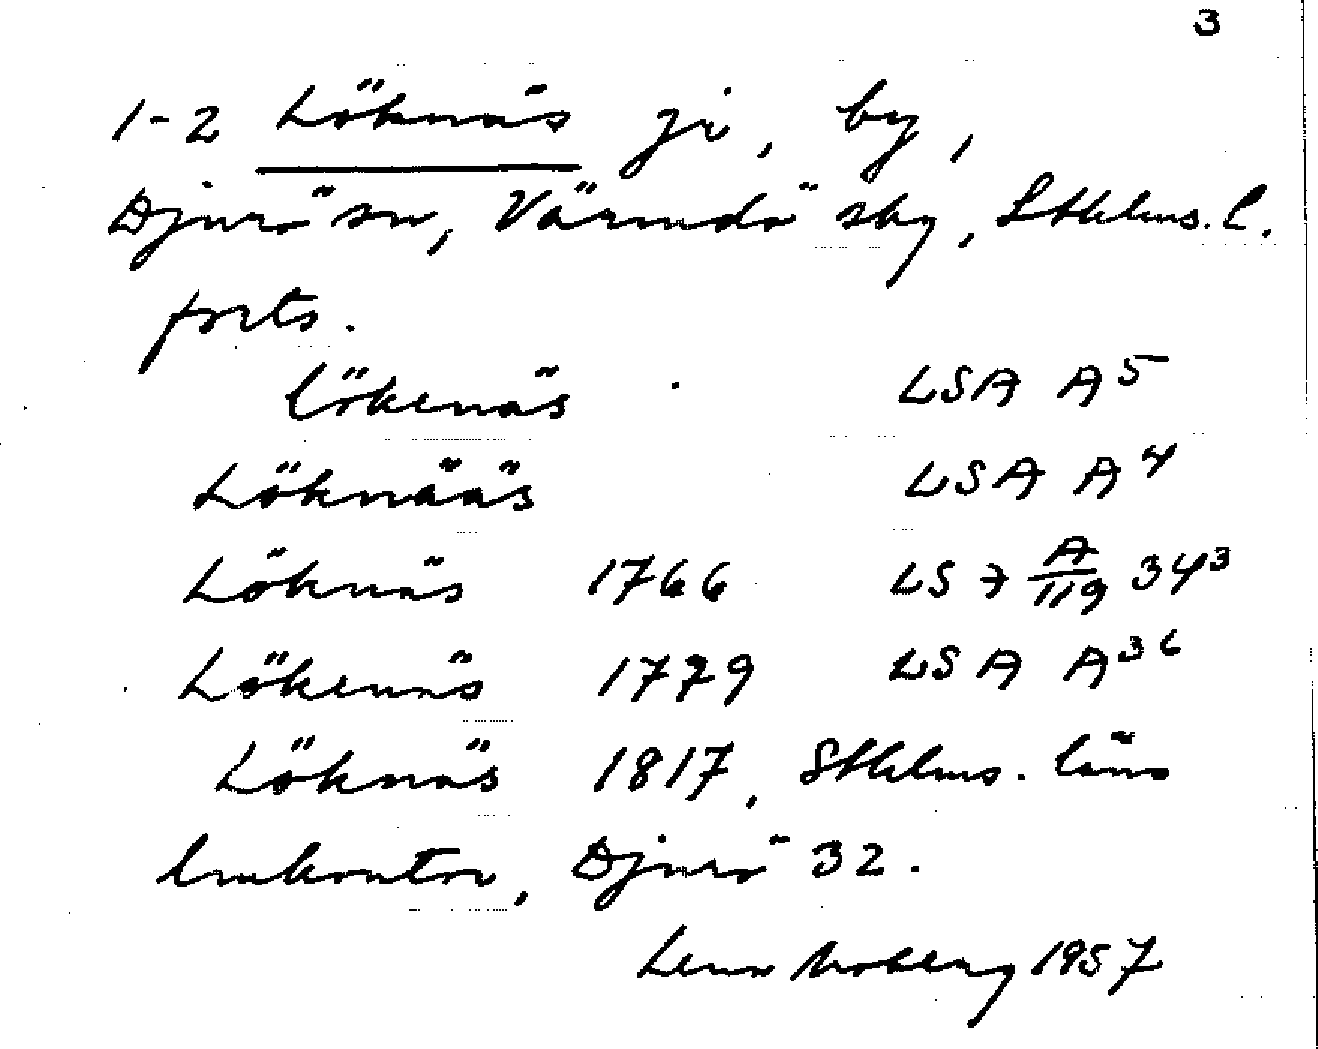 3
1-2 Löknäs ji, by,
Djurö sn, Värmdö sky, Sthlms. l.
forts.
Lökenäs LSA A⁵
Löknääs LSA A⁴
Löknäs 1766 LS 7 A/119 34³
Lökenäs 1779 LSA A³⁶
Löknäs 1817, Sthlms. läns
lmkontor, Djurö 32.
Lena Moberg 1957